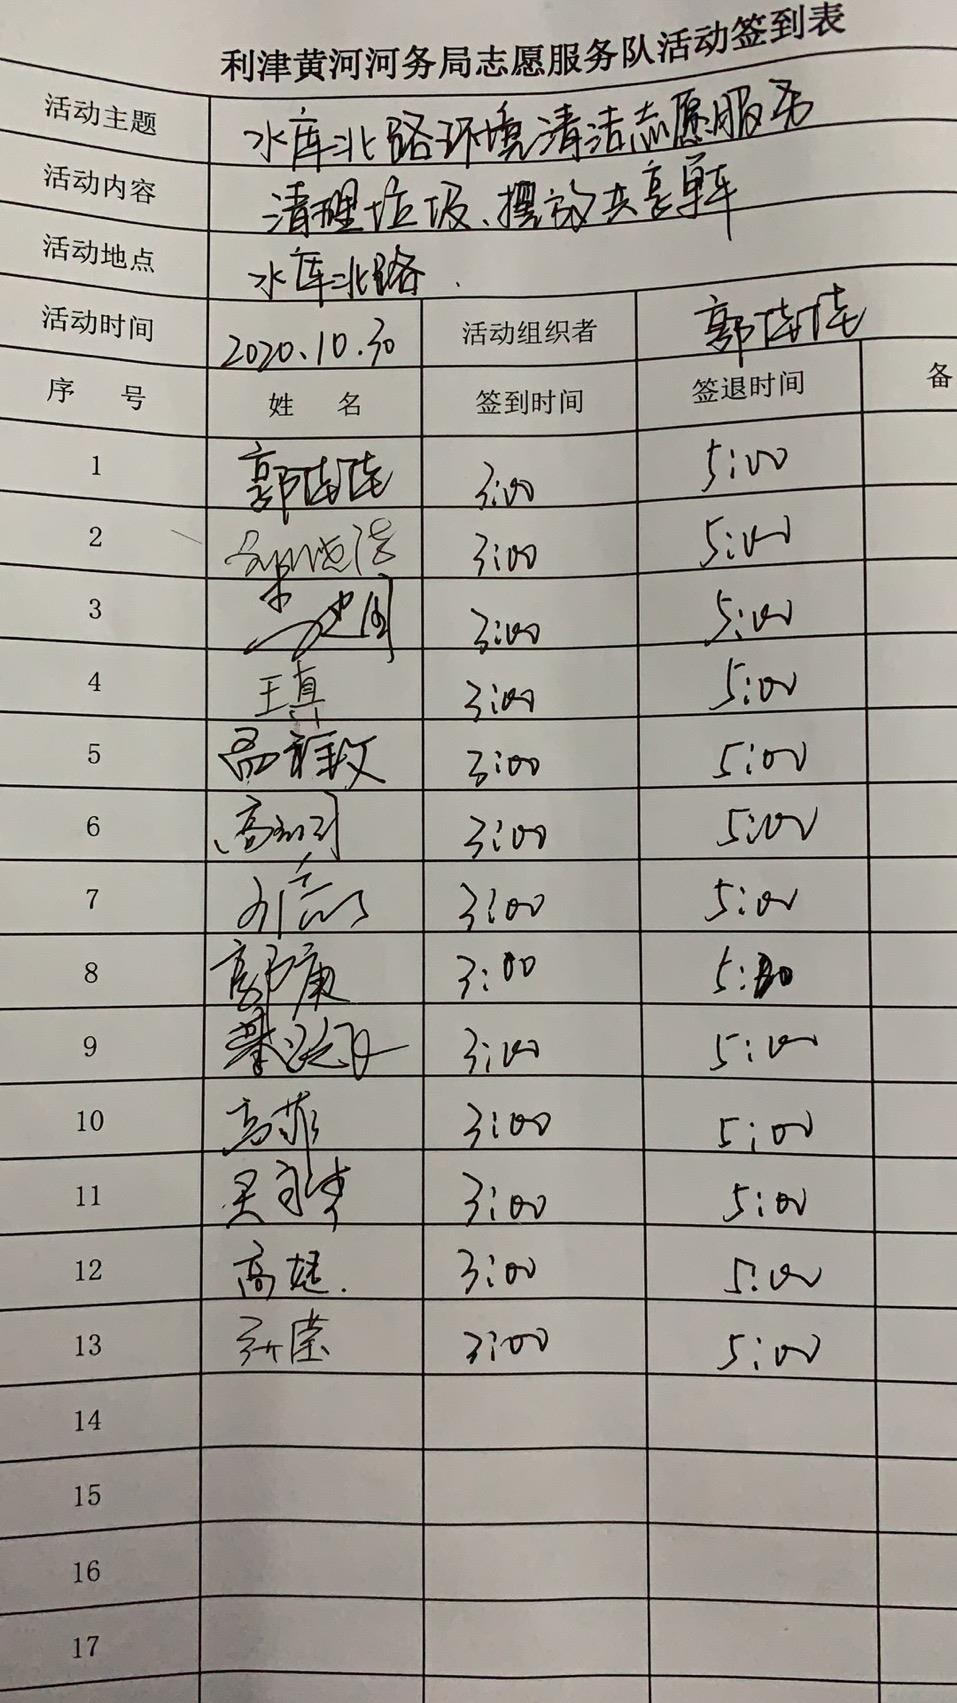 利津黄河河务局志愿服务队活动签到表
活动主题 水库北路环境清洁志愿服务
活动内容 清理垃圾、摆放共享单车
活动地点 水库北路
活动时间 2020.10.30 活动组织者 郭陆陆
序 号 姓 名 签到时间 签退时间 备
1 郭陆陆 3:00 5:00
2 3:00 5:00
3 3:00 5:00
4 王真 3:00 5:00
5 3:00 5:00
6 3:00 5:00
7 3:00 5:00
8 郭康 3:00 5:00
9 3:00 5:00
10 高菲 3:00 5:00
11 3:00 5:00
12 3:00 5:00
13 3:00 5:00
14
15
16
17